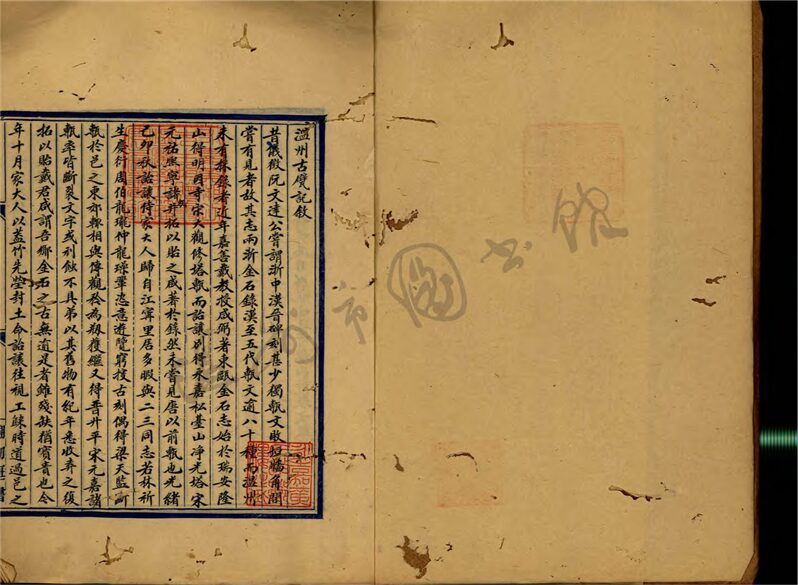 溫州古甓記敘
昔儀徵阮文達公嘗謂浙中漢晉碑刻甚少獨甎文敗垣牆角間
嘗有見者故其志兩浙金石錄漢至五代甎文逾八十種而溫州
未有採錄者近年嘉善戴教授咸弼著東甌金石志始於瑞安隆
山得明因寺宋大觀修塔甎而詒讓別得永嘉松臺山淨光塔宋
元祐熙寧諸甎并拓以貽之咸著於錄然未嘗見唐以前甎也光緒
己卯秋詒讓侍家大人歸自江寧里居多暇與二三同志若林祈
生慶衍周伯龍瓏仲龍璪輩恣意遊覽窮搜古刻偶得梁天監
甎於邑之東郊輒相與傳觀矜為甎獲繼又得晉升平宋元嘉諸
甎率皆斷裂文字或刓蝕不具弟以其舊物有紀年悉收弆之復
拓以貽戴君咸謂吾鄉金石之古無逾是者雖殘缺猶寶貴也今
年十月家大人以蓋竹先塋封土命詒讓往視工餘時道過邑之
市圖書館